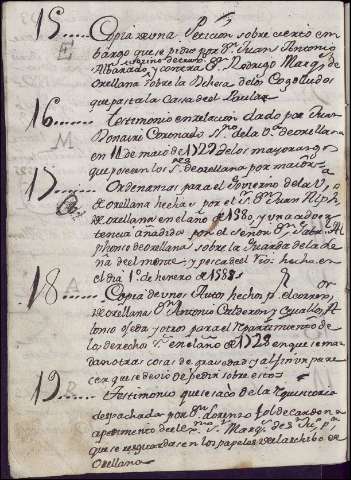 15..... Copia de una Peticion sobre cierto em
bargo que se pidio por Dn. Juan Antonio
Albarado, vecino de truxo. y contra Dn. Rodrigo Marqs. de
orellana sobre la Dehesa de los Cogolludos
que pasta la Casa de el
16..... Testimonio en relacion dado por Juan
Donaire Coronado Sno. de la Va. de orellana
en 11 de maio de 1727 de los mayorazgos
que poseen los Ses. de orellana por maior
17..... Ordenanzas para el Govierno de la Va.
de orellana hechas por el Sr. Dn. Juan Alph
de orellana en el año de 1580, y una
añadida por el Señor Dn. Gabriel Al
phonso de orellana sobre la Guarda de la de
esa del monte y pesca del Rio: hecha en
el dia 1º de henero de 1588
18...... Copia de unos Autos hechos pr. el corregor.
de orellana Dn. Antonio Calderon y Ceuallos, An
tonio ojeda y otros para el Repartimiento de
los derechos Rs. en el año de 1728 en que se man
dan otras cosas de gravedad y al fin un pare
cer que se deuio de pedir sobre estos
19..... Testimonio que se sacò de la Requisitoria
despachada por Dn. Lorenzo Fol de Cardona
a pedimento de el S. Marqs. de
que se resguardase en los papeles de el archibo de
orellana